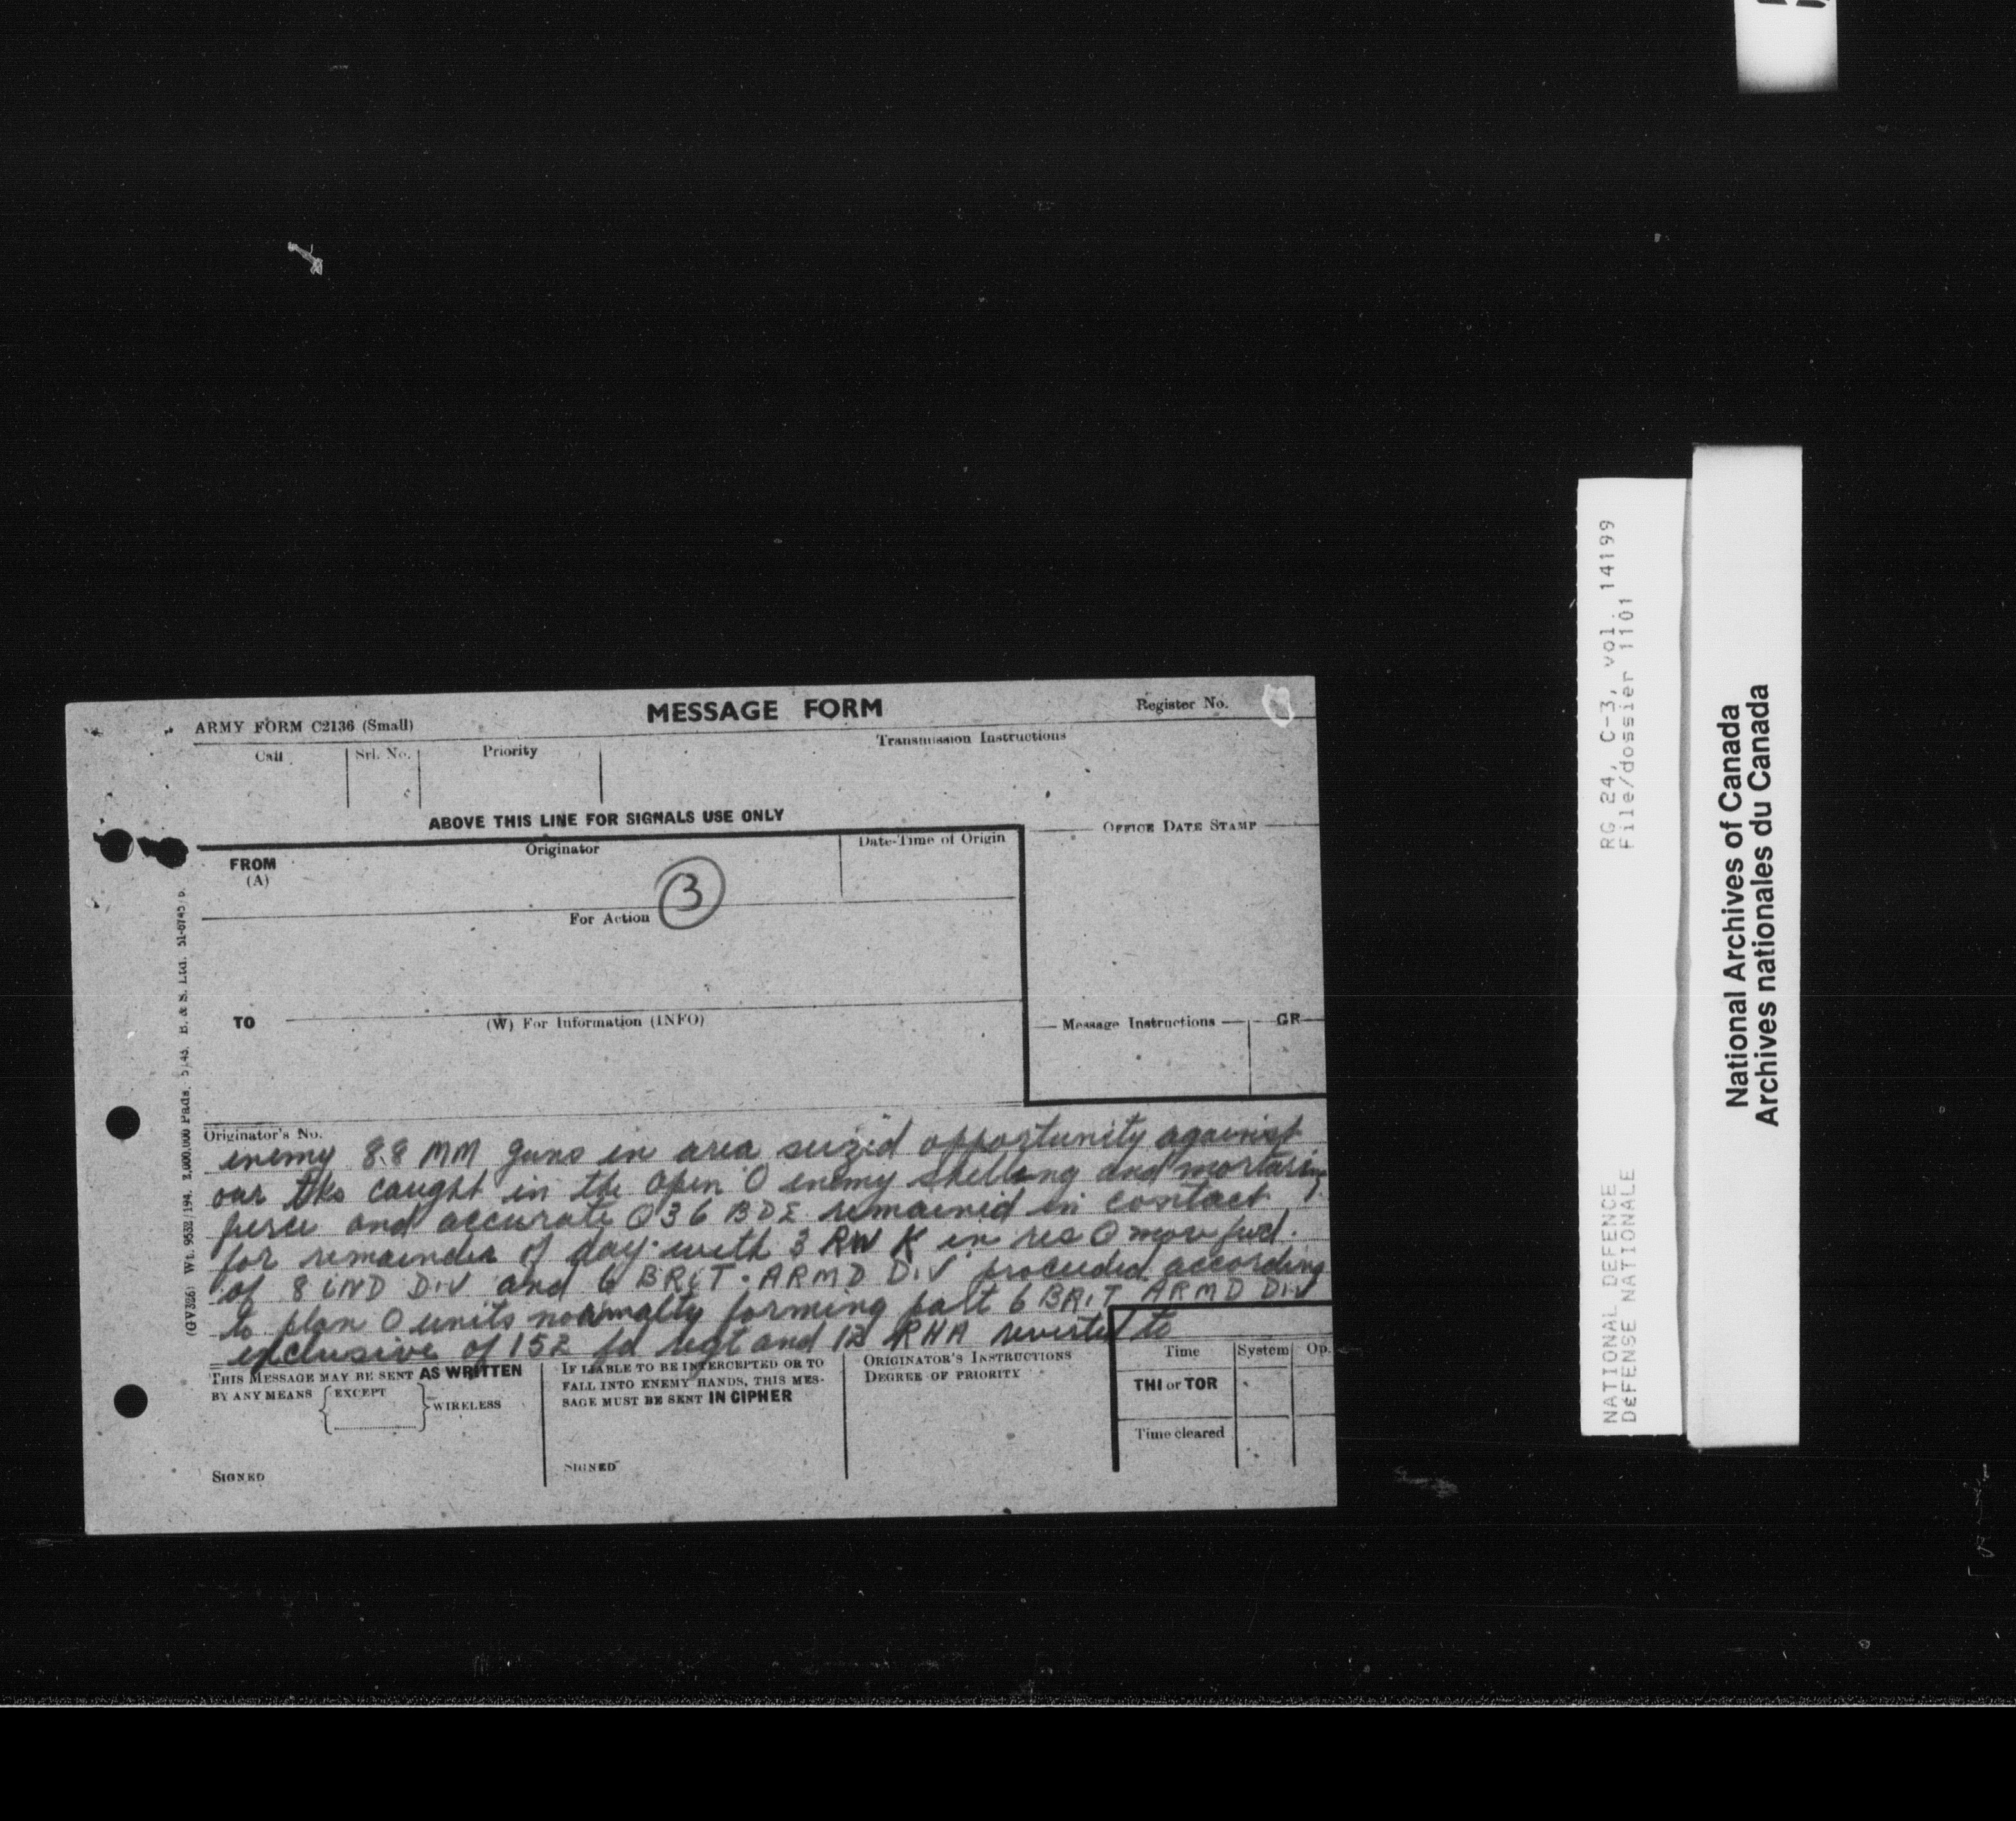 ARMY FORM C2136 (Small)
MESSAGE FORM
Register No.
Call
Srl. No.
Priority
Transmission Instructions
ABOVE THIS LINE FOR SIGNALS USE ONLY
OFFICE DATE STAMP
FROM
(A)
Originator
Date-Time of Origin
3
For Action
TO
(W) For Information (INFO)
Message Instructions
GR
Originator's No.
enemy 88 MM guns in area seized opportunity against
our tks caught in the open O enemy shelling and mortaring
fierce and accurate O 36 BDE remained in contact
for remainder of day with 3 RWK in res O move fwd.
of 8 IND DIV and 6 BRIT. ARMD DIV proceeded according
to plan O units normally forming part 6 BRIT ARMD DIV
exclusive of 152 fd regt and 12 RHA reverted to
THIS MESSAGE MAY BE SENT AS WRITTEN
BY ANY MEANS
EXCEPT
WIRELESS
SIGNED
IF LIABLE TO BE INTERCEPTED OR TO
FALL INTO ENEMY HANDS, THIS MES-
SAGE MUST BE SENT IN CIPHER
SIGNED
ORIGINATOR'S INSTRUCTIONS
DEGREE OF PRIORITY
Time
System
Op.
THI or TOR
Time cleared
(GV326) Wt. 9532/194. 5/43. B. & S. Ltd.
RG 24, C-3, vol. 14199
File/dossier 1101
NATIONAL DEFENCE
DEFENSE NATIONALE
National Archives of Canada
Archives nationales du Canada